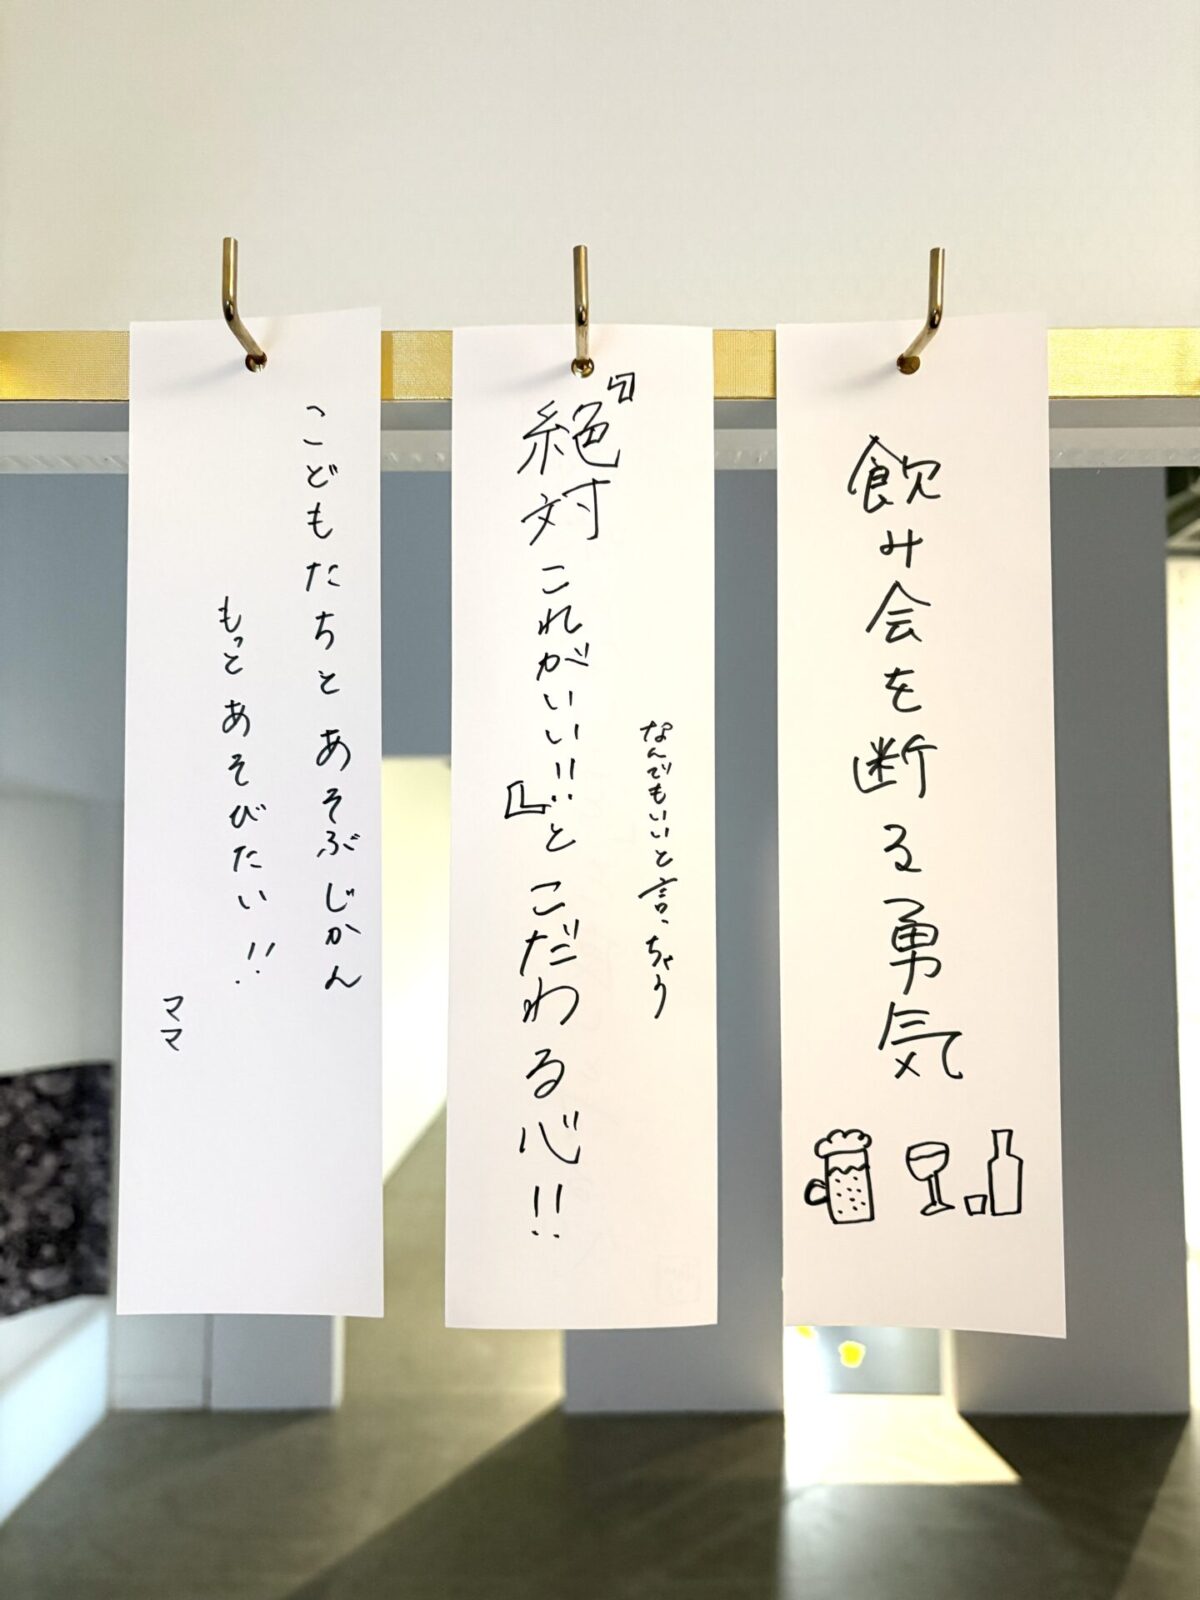 飲み会を断る勇気
なんでもいいと言っちゃう
『絶対これがいい!!』とこだわる心!!
こどもたちとあそぶじかん
もっとあそびたい!!
ママ